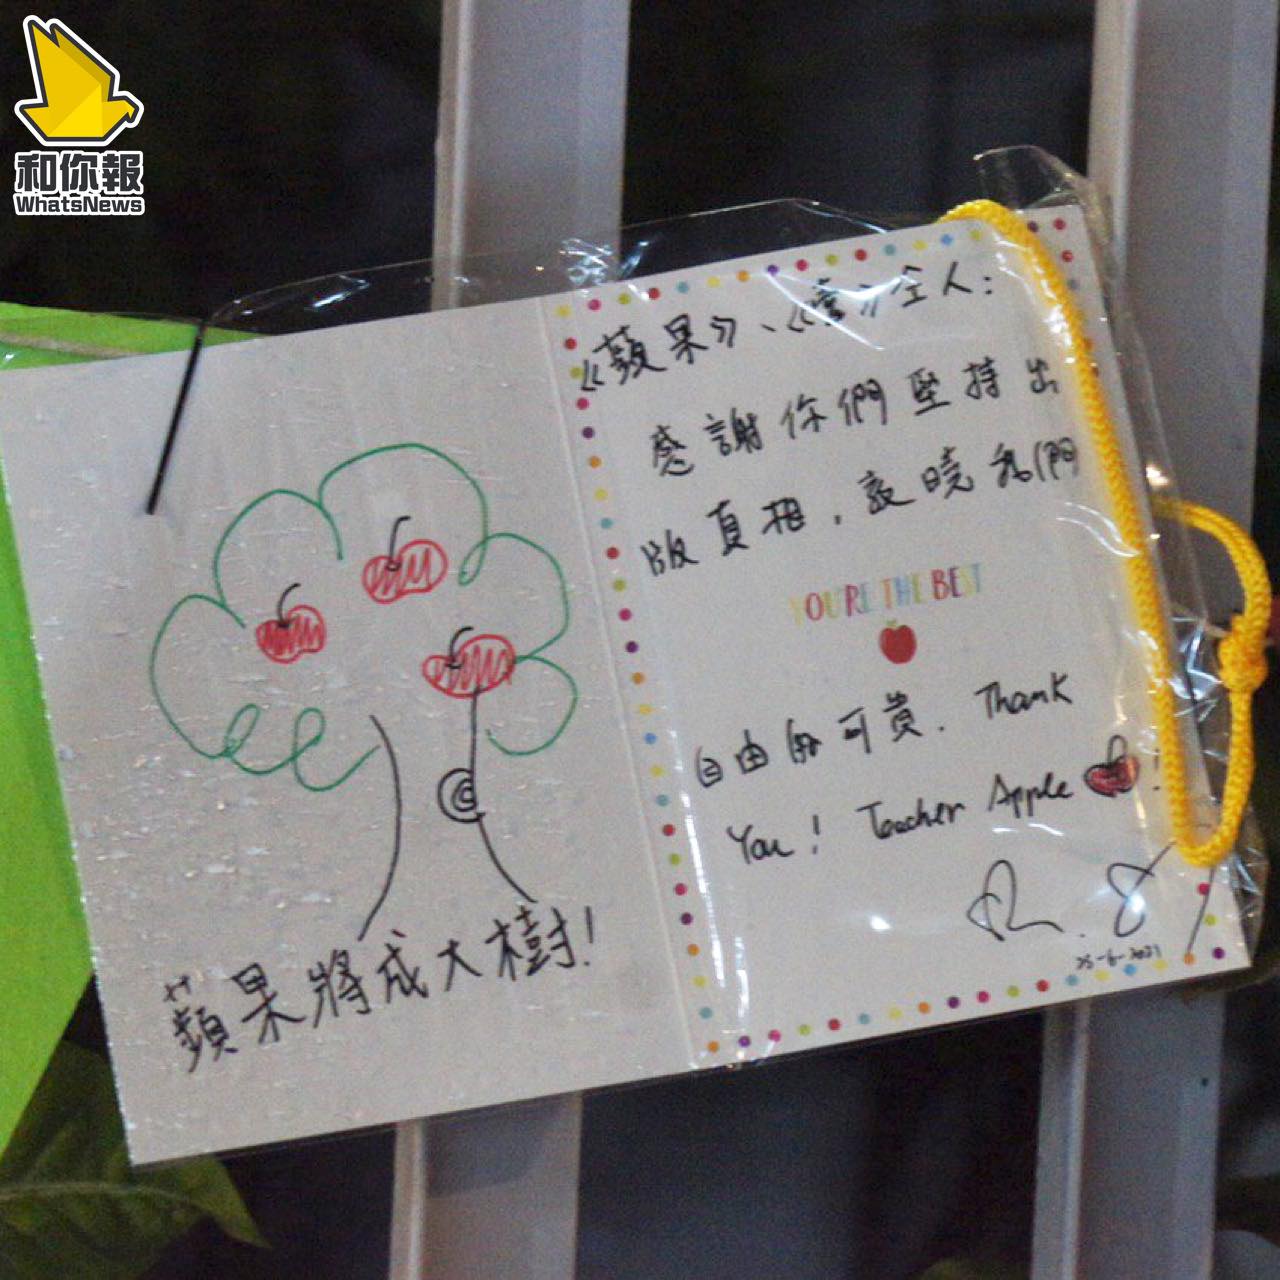 和你報
WhatsNews
《蘋果》、《壹》仝人：
感謝你們堅持出
版真相，教曉我們
YOU'RE THE BEST
自由的可貴. Thank
You! Teacher Apple !
25-6-2021
蘋果將成大樹!